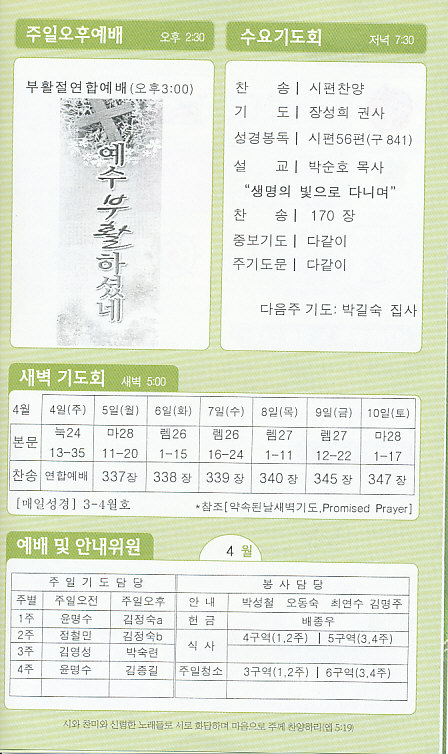 주일오후예배 오후 2:30
부활절연합예배(오후3:00)
예수부활하셨네
수요기도회 저녁 7:30
찬 송 | 시편찬양
기 도 | 장성희 권사
성경봉독 | 시편56편(구 841)
설 교 | 박순호 목사
"생명의 빛으로 다니며"
찬 송 | 170 장
중보기도 | 다같이
주기도문 | 다같이
다음주 기도: 박길숙 집사
새벽 기도회 새벽 5:00
4월 4일(주) 5일(월) 6일(화) 7일(수) 8일(목) 9일(금) 10일(토)
본문 눅24 13-35 마28 11-20 렘26 1-15 렘26 16-24 렘27 1-11 렘27 12-22 마28 1-17
찬송 연합예배 337장 338 장 339 장 340 장 345 장 347 장
[매일성경] 3-4월호 *참조[약속된날새벽기도,Promised Prayer]
예배 및 안내위원 4 월
주 일 기 도 담 당
주별 주일오전 주일오후
1주 윤명수 김정숙a
2주 정철민 김정숙b
3주 김영성 박숙련
4주 윤명수 김종길
봉 사 담 당
안 내 박성철 오동숙 최연수 김명주
헌 금 배종우
식 사 4구역(1,2주) | 5구역(3,4주)
주일청소 3구역(1,2주) | 6구역(3,4주)
시와 찬미와 신령한 노래들로 서로 화답하며 마음으로 주께 찬양하라(엡 5:19)